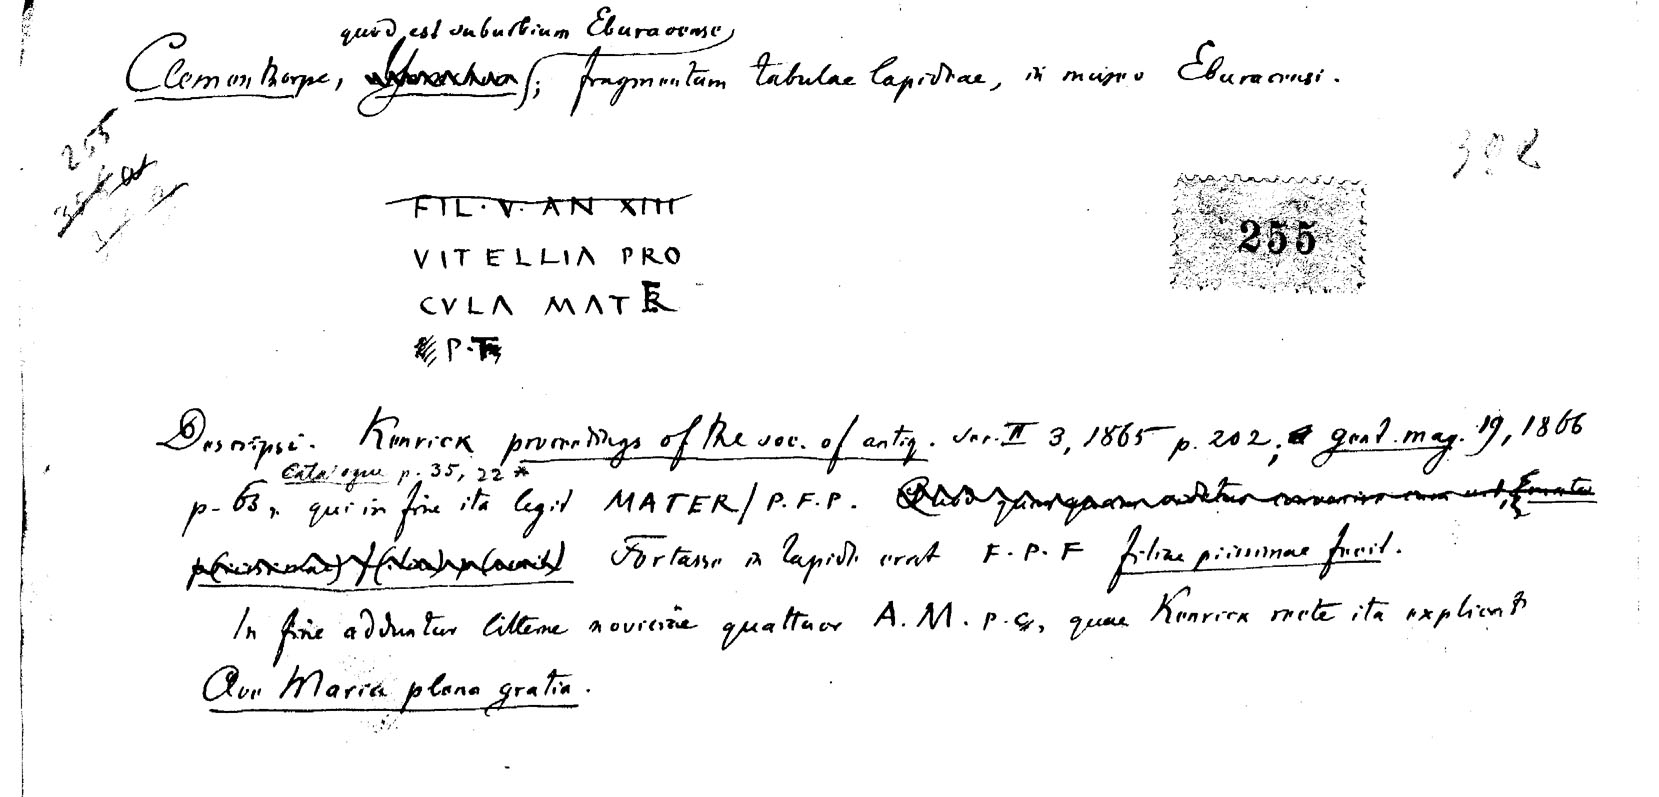 quod est suburbium Eburacense
Clementhorpe, ; fragmentum tabulae lapidiae, in museo Eburacensi.
255
302
255
FIL·V·AN XIII
VITELLIA PRO
CVLA MATER
P·
Descripsi. Kenrick proceedings of the soc. of antiq. ser. II 3, 1865 p. 202; gent. mag. 19, 1866
Catalogue p. 35, 22
p. 63, qui in fine ita legit MATER/P.F.P.
Fortasse in lapide erat F·P·F filiae piissimae fecit.
In fine adduntur litterae noviciae quattuor A.M.P.G, quae Kenrick recte ita explicat
Ave Maria plena gratia.